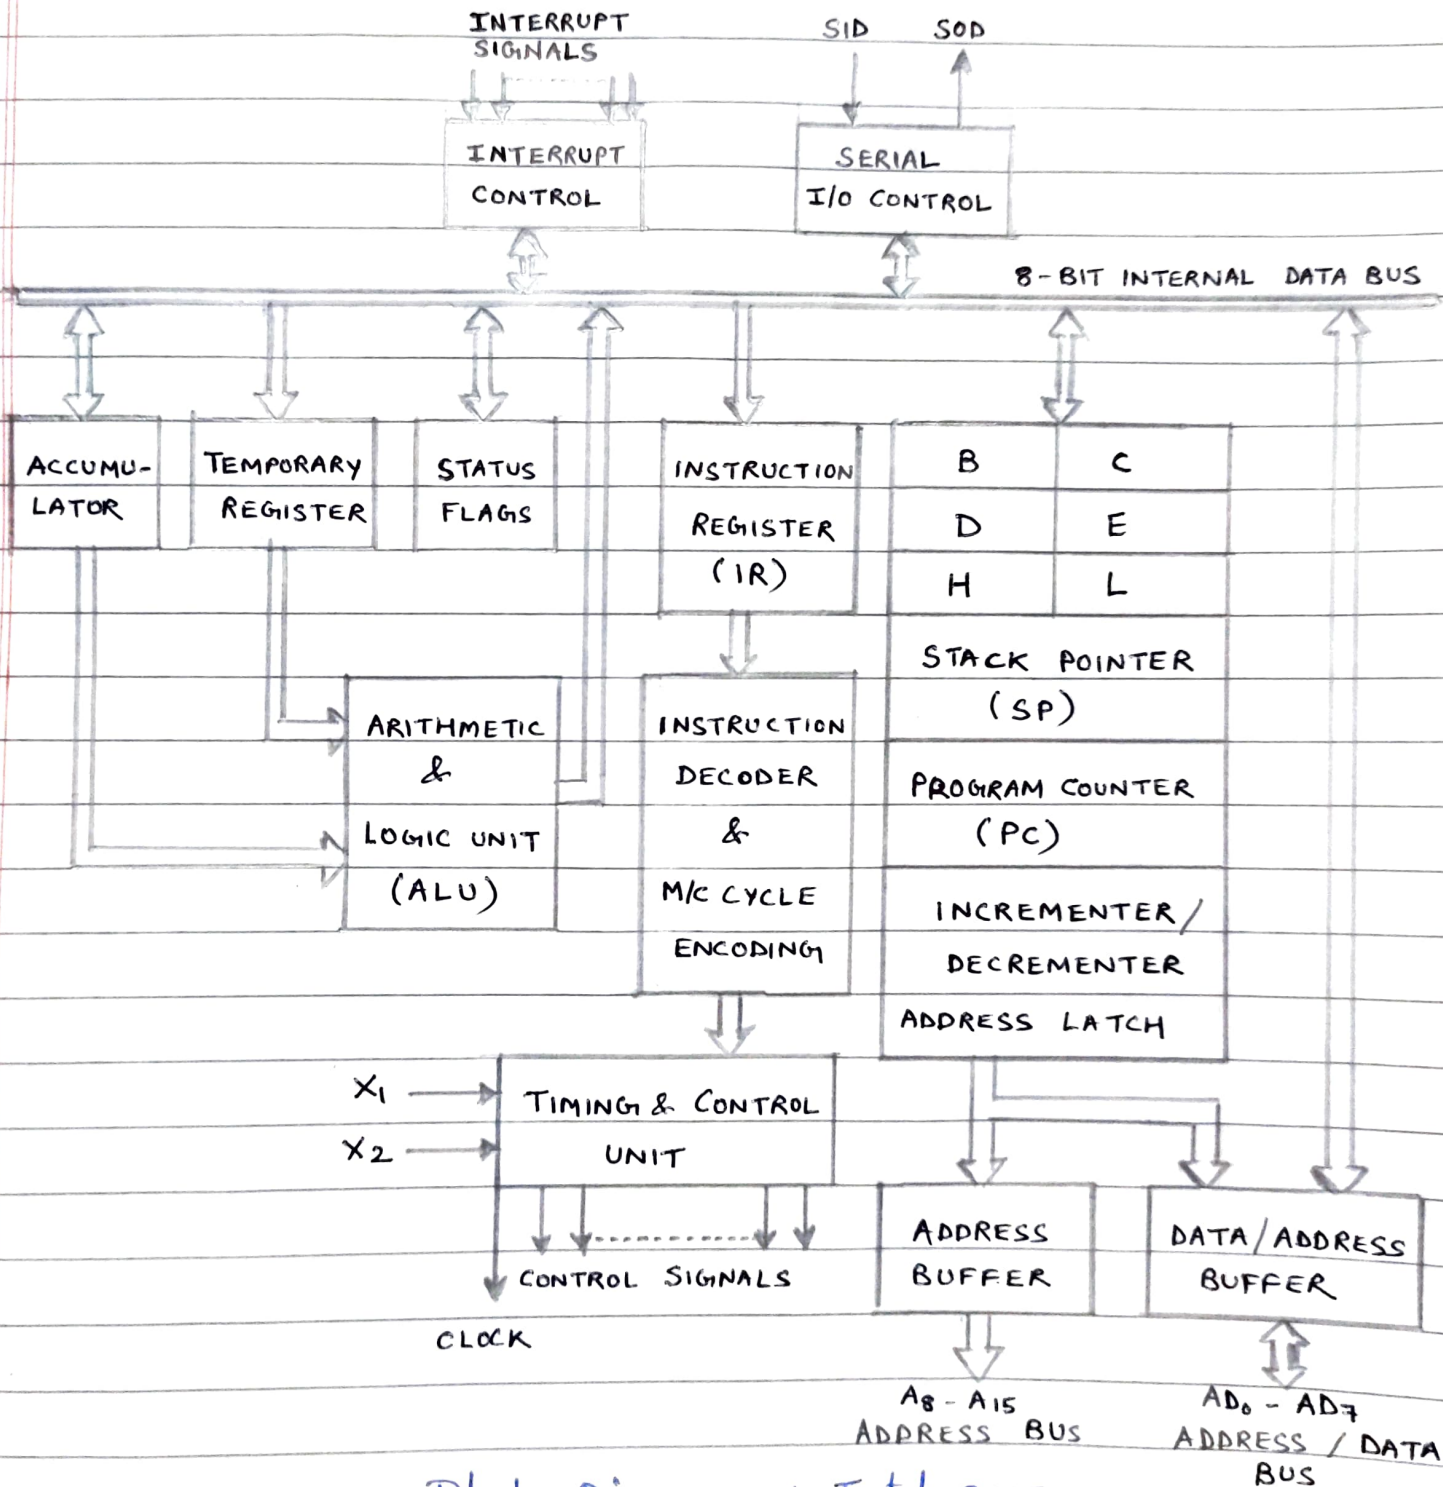 INTERRUPT
SIGNALS
SID
SOD
INTERRUPT
CONTROL
SERIAL
I/O CONTROL
8-BIT INTERNAL DATA BUS
ACCUMU-
LATOR
TEMPORARY
REGISTER
STATUS
FLAGS
INSTRUCTION
REGISTER
(IR)
B
C
D
E
H
L
STACK POINTER
(SP)
PROGRAM COUNTER
(PC)
INCREMENTER/
DECREMENTER
ADDRESS LATCH
ARITHMETIC
&
LOGIC UNIT
(ALU)
INSTRUCTION
DECODER
&
M/C CYCLE
ENCODING
X1
X2
TIMING & CONTROL
UNIT
CONTROL SIGNALS
CLOCK
ADDRESS
BUFFER
DATA/ADDRESS
BUFFER
A8 - A15
ADDRESS BUS
AD0 - AD7
ADDRESS / DATA
BUS